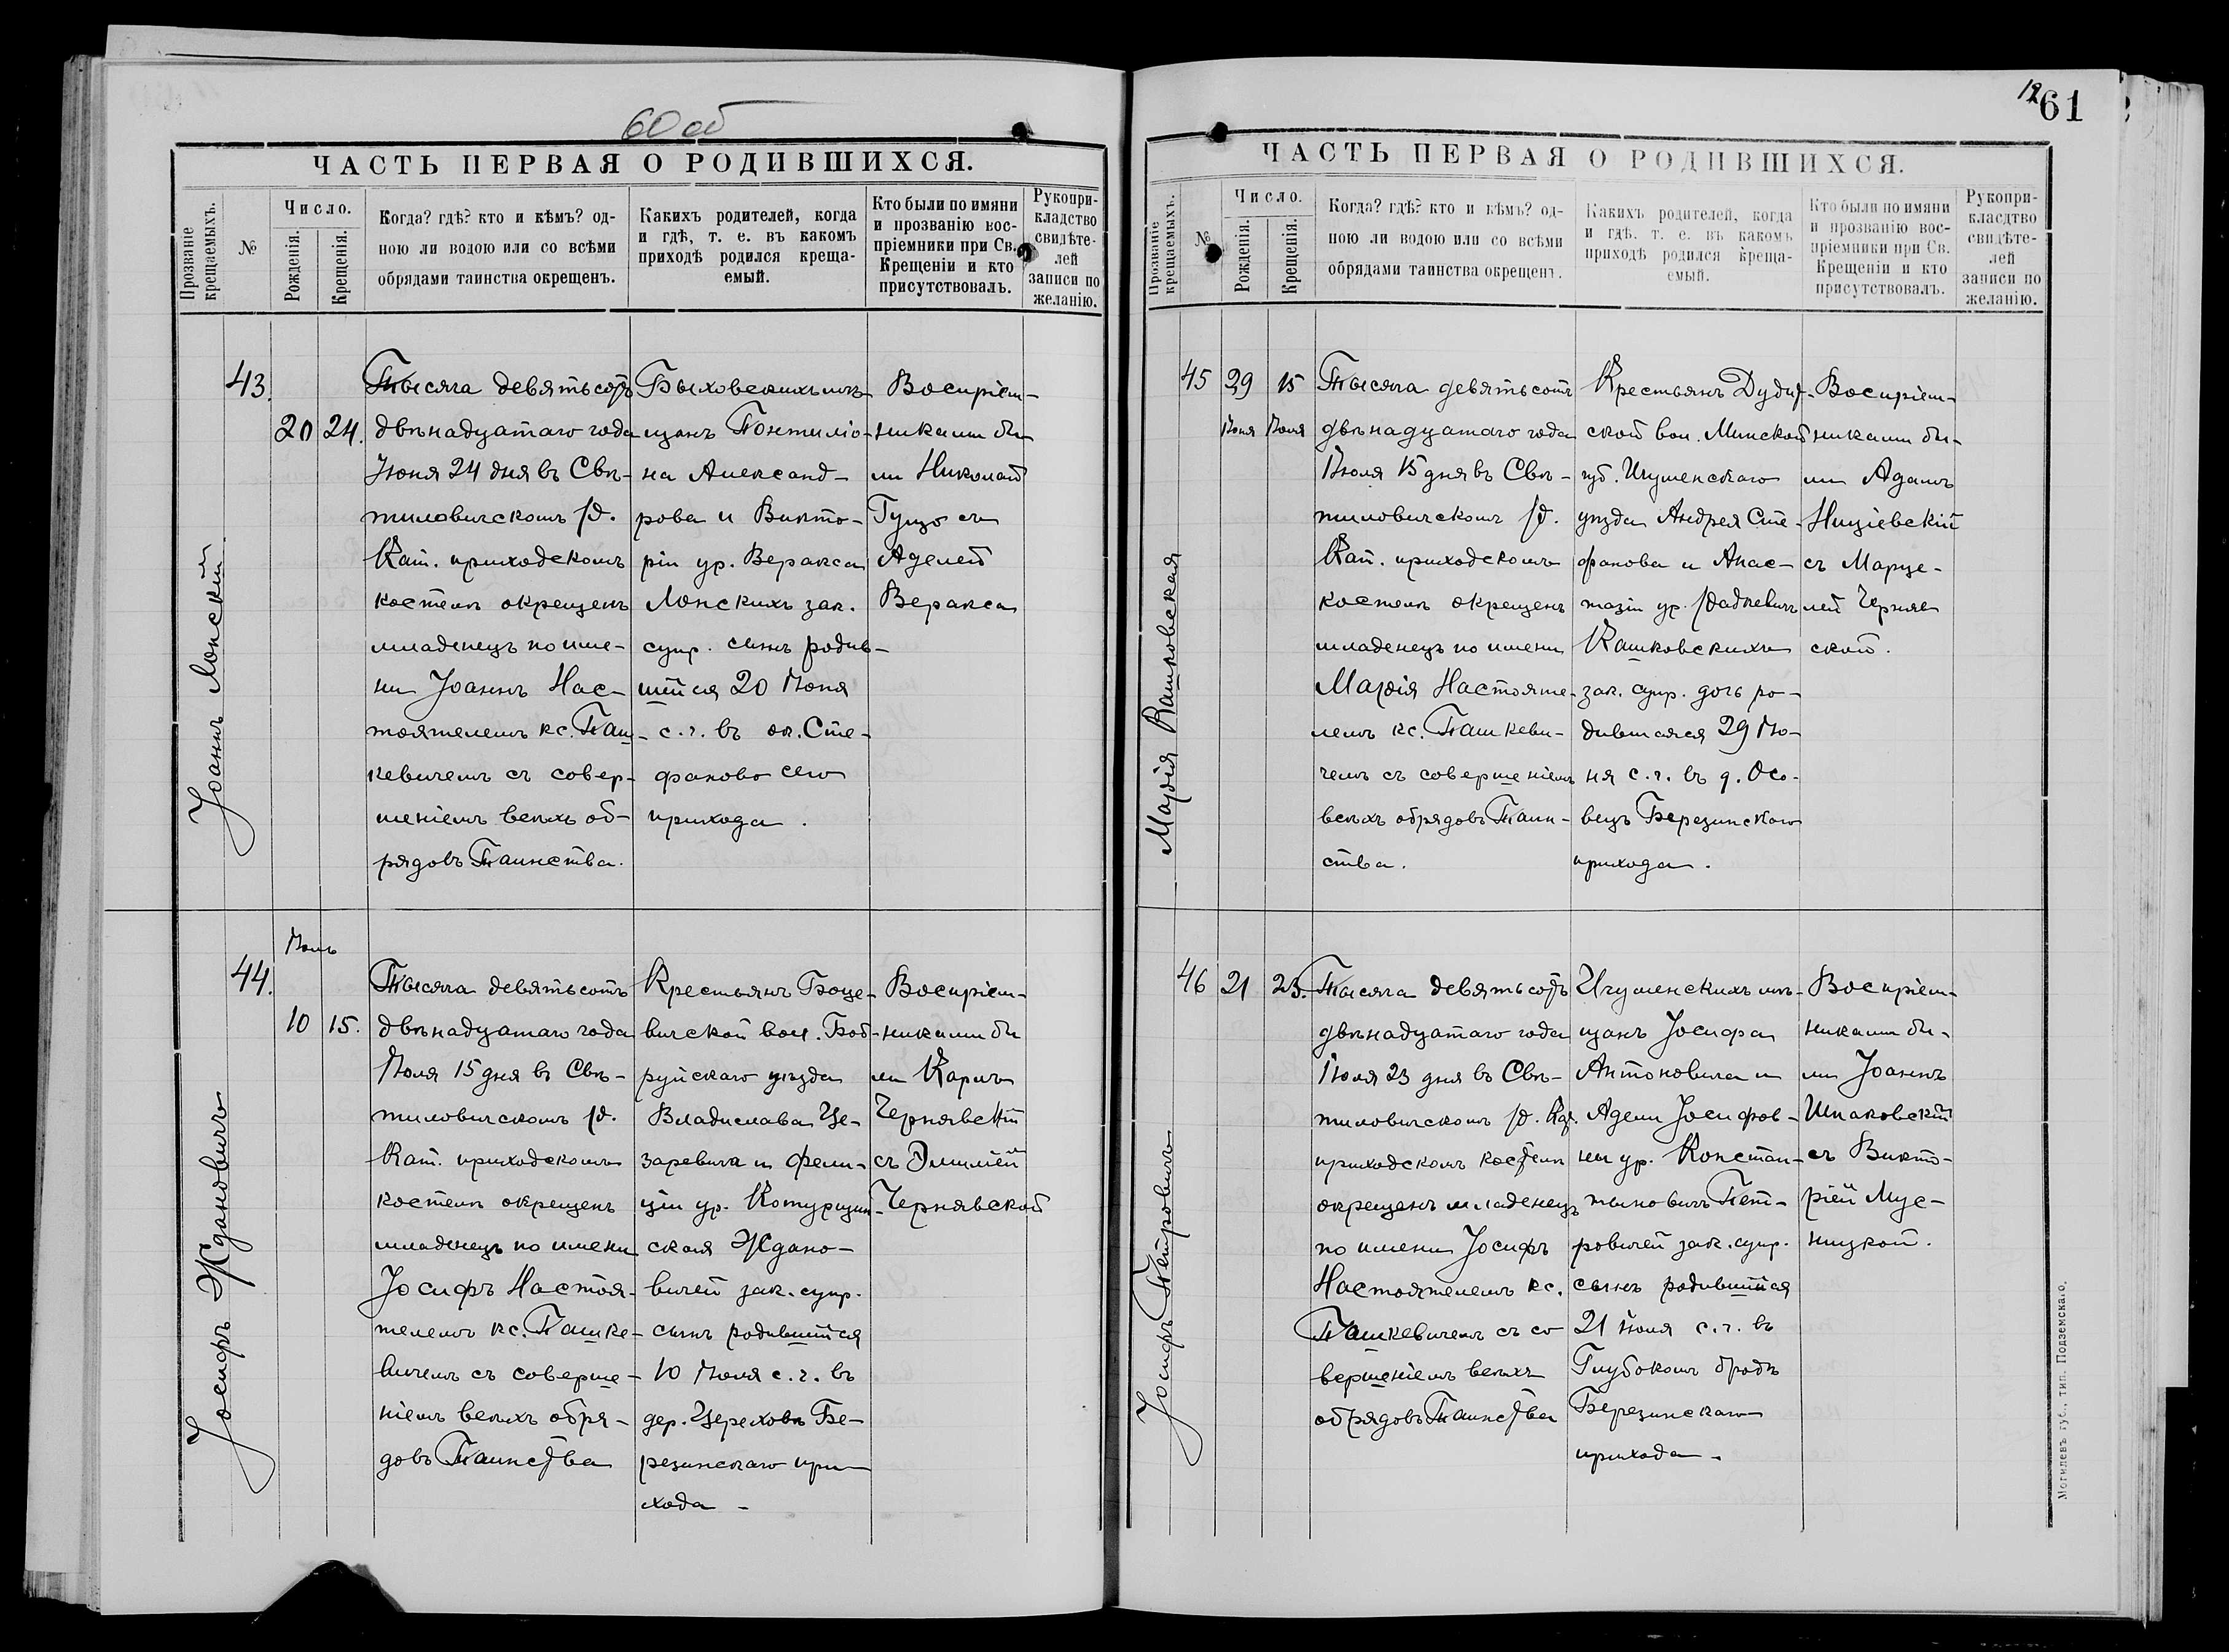 60 об
ЧАСТЬ ПЕРВАЯ О РОДИВШИХСЯ.
Прозваніе крещаемыхъ.
№
Число.
Рожденія.
Крещенія.
Когда? гдѣ? кто и кѣмъ? од-
ною ли водою или со всѣми
обрядами таинства окрещенъ.
Какихъ родителей, когда
и гдѣ, т. е. въ какомъ
приходѣ родился креща-
емый.
Кто были по имяни
и прозванію вос-
пріемники при Св.
Крещеніи и кто
присутствовалъ.
Рукопри-
кладство
свидѣте-
лей
записи по
желанію.
Іоаннъ Лонскій
43.
20 24.
Тысяча девятьсотъ
двѣнадцатаго года
Іюня 24 дня въ Свѣ-
тиловичскомъ р.
Кат. приходскомъ
костелѣ окрещенъ
младенецъ по име-
ни Іоаннъ Нас-
тоятелемъ кс. Паш-
кевичемъ съ совер-
шеніемъ всѣхъ об-
рядовъ Таинства.
Быховскихъ мѣ-
щанъ Понтиліо-
на Александ-
рова и Викто-
ріи ур. Веракса
Лонскихъ зак.
супр. сынъ родив-
шійся 20 Іюня
с. г. въ ок. Сте-
фаново сего
прихода.
Воспріем-
никами бы-
ли Николай
Гуцо съ
Аделей
Веракса
Іосифъ Ждановичъ
44.
Іюль
10 15.
Тысяча девятьсотъ
двѣнадцатаго года
Іюля 15 дня въ Свѣ-
тиловичскомъ р.
Кат. приходскомъ
костелѣ окрещенъ
младенецъ по имени
Іосифъ Настоя-
телемъ кс. Пашке-
вичемъ съ соверше-
ніемъ всѣхъ обря-
довъ Таинства
Крестьянъ Боце-
вичской вол. Боб-
руйскаго уѣзда
Владислава Це-
заревича и Фели-
ціи ур. Котурщин-
ская Ждано-
вичей зак. супр.
сынъ родившійся
10 Іюля с. г. въ
дер. Цереховѣ Бе-
резинскаго при-
хода -
Воспріем-
никами бы
ли Карлъ
Чернявскій
съ Эмиліей
Чернявской
1261
ЧАСТЬ ПЕРВАЯ О РОДИВШИХСЯ.
Прозваніе крещаемыхъ.
№
Число.
Рожденія.
Крещенія.
Когда? гдѣ? кто и кѣмъ? од-
ною ли водою или со всѣми
обрядами таинства окрещенъ.
Какихъ родителей, когда
и гдѣ. т. е. въ какомъ
приходѣ родился креща-
емый.
Кто были по имяни
и прозванію вос-
пріемники при Св.
Крещеніи и кто
присутствовалъ.
Рукопри-
класдтво
свидѣте-
лей
записи по
желанію.
Марія Кашковская
45
29 15
Іюня Іюля
Тысяча девятьсотъ
двѣнадцатаго года
Іюля 15 дня въ Свѣ-
тиловичскомъ р.
Кат. приходскомъ
костелѣ окрещенъ
младенецъ по имени
Марія Настояте-
лемъ кс. Пашкеви-
чемъ съ совершеніемъ
всѣхъ обрядовъ Таин-
ства.
Крестьянъ Дудич-
ской вол. Минской
губ. Игуменскаго
уѣзда Андрея Сте-
фанова и Анас-
тазіи ур. Радкевичъ
Кашковскихъ
зак. супр. дочь ро-
дившаяся 29 Ію-
ня с. г. въ д. Осо-
вецъ Березинскаго
прихода.
Воспріем-
никами бы-
ли Адамъ
Ницієвскій
съ Марце-
лей Черняв
ской.
Іосифъ Петровичъ
46
21 23.
Тысяча девятьсотъ
двѣнадцатаго года
Іюля 23 дня въ Свѣ-
тиловичскомъ р. Кат.
приходскомъ костелѣ
окрещенъ младенецъ
по имени Іосифъ
Настоятелемъ кс.
Пашкевичемъ съ со
вершеніемъ всѣхъ
обрядовъ Таинства
Игуменскихъ мѣ-
щанъ Іосифа
Антоновича и
Адели Іосифов-
ны ур. Констан-
тиновичъ Пет-
ровичей зак. супр.
сынъ родившійся
21 Іюля с. г. въ
Глубокомъ бродѣ
Березинскаго
прихода.
Воспріем-
никами бы-
ли Іоаннъ
Шпаковскій
съ Викто-
ріей Мус-
ницкой.
Могилевъ губ., тип. Подземскаго.